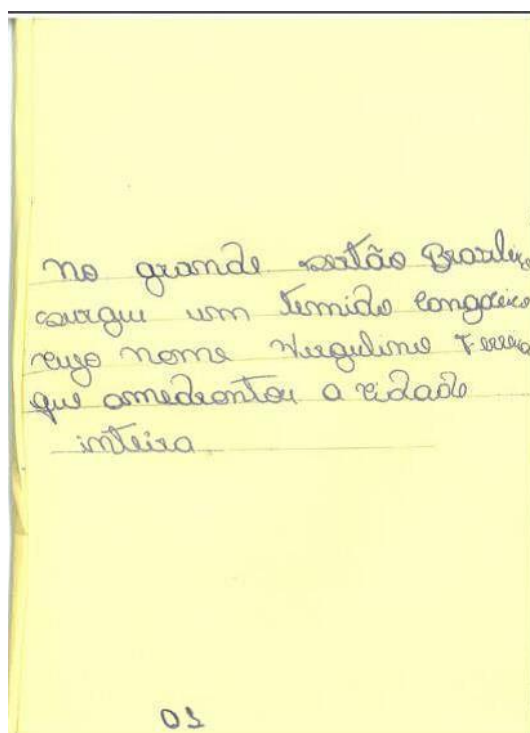 no grande sertão Brasilei
surgiu um temido cangacei
cujo nome Virgulino Ferrei
que amedrontou a cidade
inteira
01